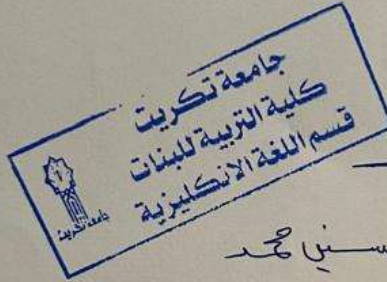 جامعة تكريت
كلية التربية للبنات
قسم اللغة الانكليزية
جامعة تكريت
محمد